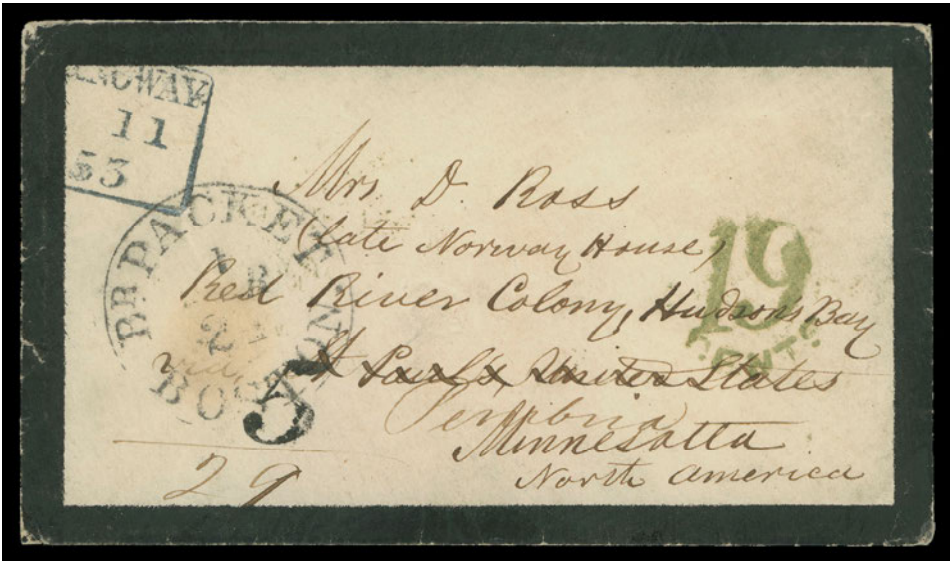 11
53
BR. PACKET
BOSTON
Mrs D. Ross
(late Norway House)
Red River Colony, Hudson's Bay
via St Paul's United States
Pembina
Minnesotta
North America
19
CENTS
5
29